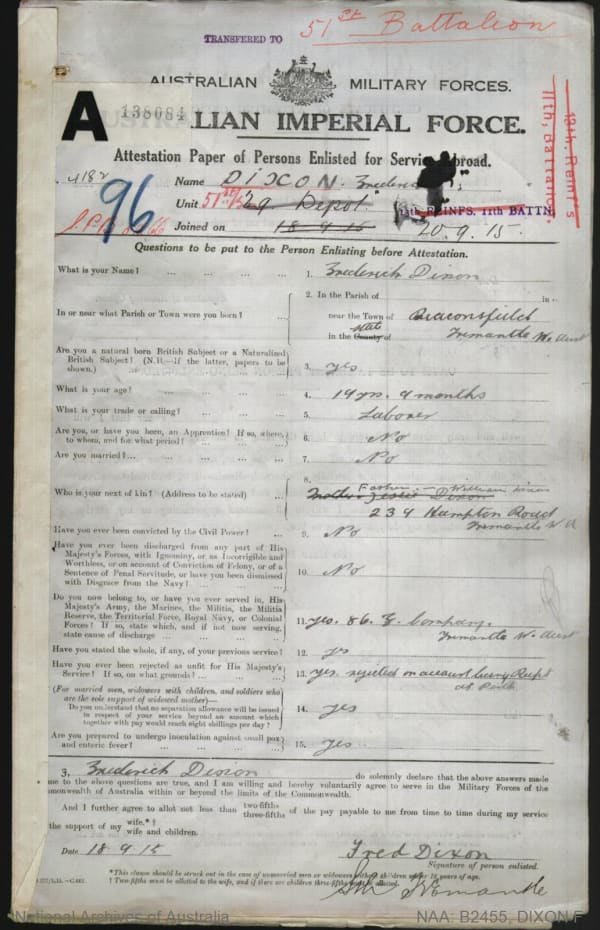 TRANSFERED TO 51st Battalion
AUSTRALIAN MILITARY FORCES.
A 138084
LIAN IMPERIAL FORCE.
Attestation Paper of Persons Enlisted for Service Abroad.
4182
96
Name DIXON. Frederick
Unit 51st/5 29 Depot 13th REINFS. 11th BATTN.
Joined on 18.9.15 20.9.15.
13th. Reinf's
11th, Battalion.
Questions to be put to the Person Enlisting before Attestation.
What is your Name? ... ... ... ... 1. Frederick Dixon
In or near what Parish or Town were you born? ... 2. In the Parish of in or
near the Town of Beaconsfield
in the County of state Fremantle W. Aust
Are you a natural born British Subject or a Naturalized
British Subject? (N.B.—If the latter, papers to be
shown.) 3. yes
What is your age? 4. 19 yrs. 9 months
What is your trade or calling? 5. Laborer
Are you, or have you been, an Apprentice? If so, where,
to whom, and for what period? 6. No
Are you married? 7. No
Who is your next of kin? (Address to be stated) ... 8. Father:— William Dixon
Mother Dixon
234 Hampton Road
Fremantle W.A
Have you ever been convicted by the Civil Power? 9. No
Have you ever been discharged from any part of His
Majesty's Forces, with Ignominy, or as Incorrigible and
Worthless, or on account of Conviction of Felony, or of a
Sentence of Penal Servitude, or have you been dismissed
with Disgrace from the Navy? ... 10. No
Do you now belong to, or have you ever served in, His
Majesty's Army, the Marines, the Militia, the Militia
Reserve, the Territorial Force, Royal Navy, or Colonial
Forces? If so, state which, and if not now serving,
state cause of discharge ... 11. yes. 86. G. Company.
Fremantle W. Aust
Have you stated the whole, if any, of your previous service? 12. yes
Have you ever been rejected as unfit for His Majesty's
Service? If so, on what grounds? ... 13. yes, rejected on account being Rupt
at Perth
(For married men, widowers with children, and soldiers who
are the sole support of widowed mother)—
Do you understand that no separation allowance will be issued
in respect of your service beyond an amount which
together with pay would reach eight shillings per day? 14. yes
Are you prepared to undergo inoculation against small pox
and enteric fever? 15. yes
3, Frederick Dixon do solemnly declare that the above answers made
me to the above questions are true, and I am willing and hereby voluntarily agree to serve in the Military Forces of the
mmonwealth of Australia within or beyond the limits of the Commonwealth.
And I further agree to allot not less than two-fifths three-fifths of the pay payable to me from time to time during my service
the support of my wife.*† wife and children.
Date 18.9.15
Fred Dixon
Signature of person enlisted.
*This clause should be struck out in the case of unmarried men or widowers without children under 18 years of age.
† Two-fifths must be allotted to the wife, and if there are children three-fifths must be allotted.
National Archives of Australia
NAA: B2455, DIXON F